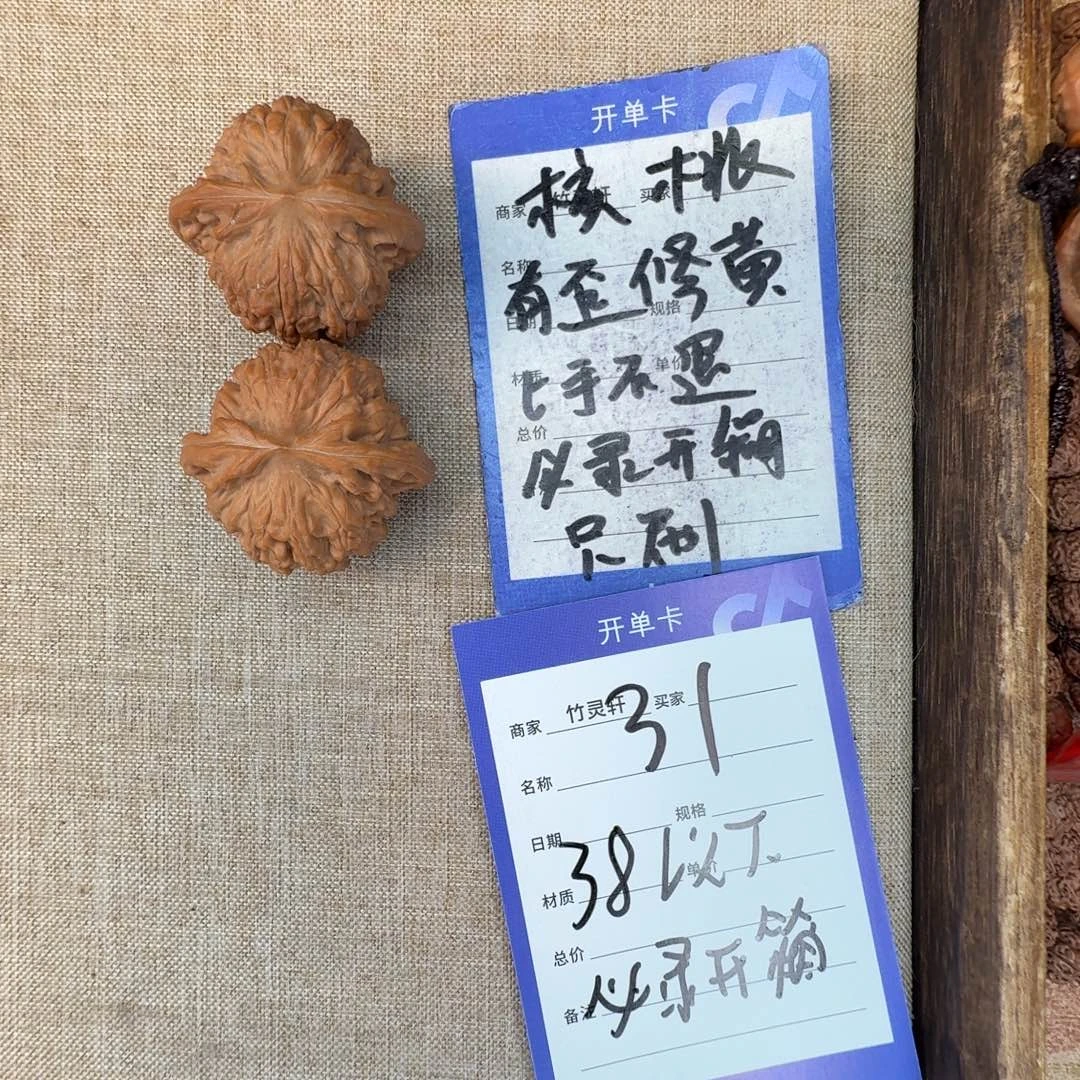 开单卡
核桃
商家 竹灵轩 买家
名称
有歪修黄
日期 规格
上手不退
材质 单价
总价
必录开箱
只刷
开单卡
31
商家 竹灵轩 买家
名称
规格
日期
38以下
材质 单价
总价
必录开箱
备注